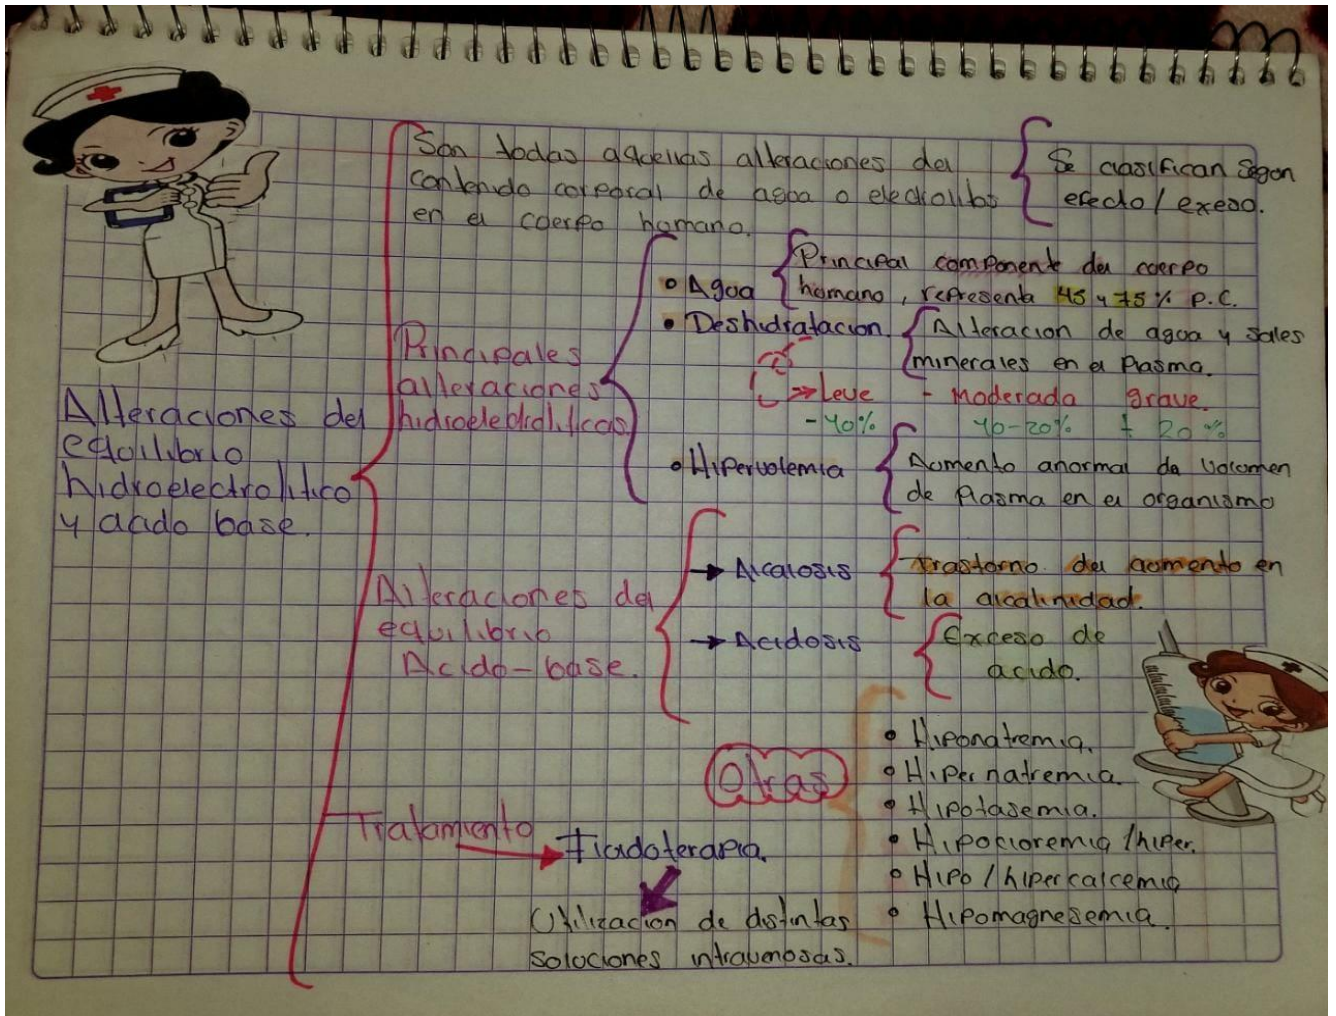 Son todas aquellas alteraciones del
contenido corporal de agua o electrolitos
en el cuerpo humano.
Se clasifican segun
efecto / exeso.
Alteraciones del
equilibrio
hidroelectrolitico
y acido base.
Principales
alteraciones
hidroelectroliticas
• Agua
Principal componente del cuerpo
humano, representa 45 y 75 % P.C.
• Deshidratacion.
Alteracion de agua y sales
minerales en el Plasma.
Leve - Moderada grave.
-10% 10-20% + 20 %
• Hipervolemia
Aumento anormal de volumen
de Plasma en el organismo
Alteraciones del
equilibrio
Acido-base.
→ Alcalosis
Trastorno del aumento en
la alcalinidad.
→ Acidosis
Exceso de
acido.
Otras
• Hiponatremia.
• Hipernatremia.
• Hipotasemia.
• Hipocloremia / hiper.
• Hipo / hipercalcemia
• Hipomagnesemia.
Tratamiento → Fludoterapia.
Utilizacion de distintas
soluciones intravenosas.